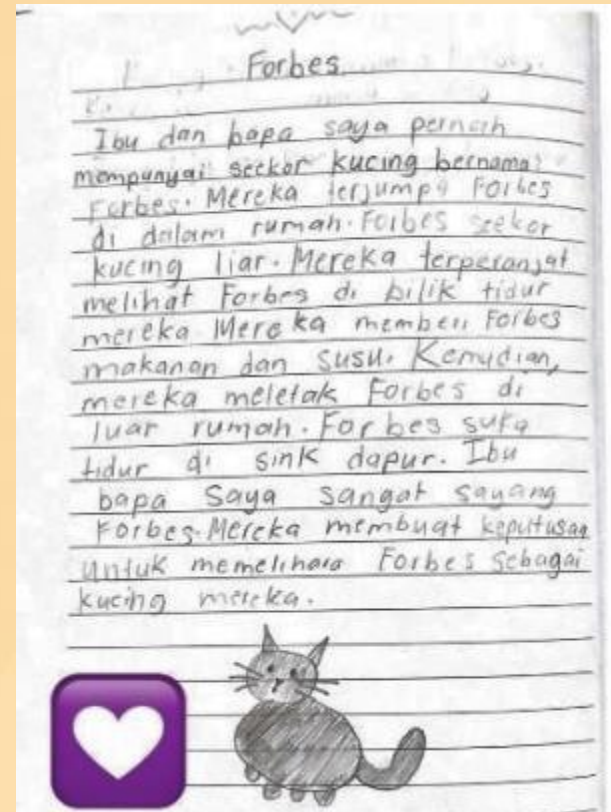 Forbes
Ibu dan bapa saya pernah
mempunyai seekor kucing bernama
Forbes. Mereka terjumpa Forbes
di dalam rumah. Forbes seekor
kucing liar. Mereka terperanjat
melihat Forbes di bilik tidur
mereka. Mereka memberi Forbes
makanan dan susu. Kemudian,
mereka meletak Forbes di
luar rumah. Forbes suka
tidur di sink dapur. Ibu
bapa saya sangat sayang
Forbes. Mereka membuat keputusan
untuk memelihara Forbes sebagai
kucing mereka.